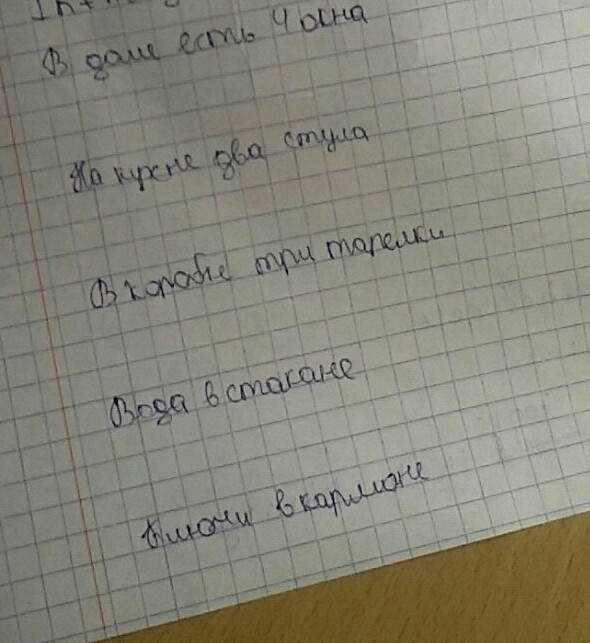 В доме есть 4 окна
На кухне два стула
В коробке три тарелки
Вода в стакане
Ключи в кармоне